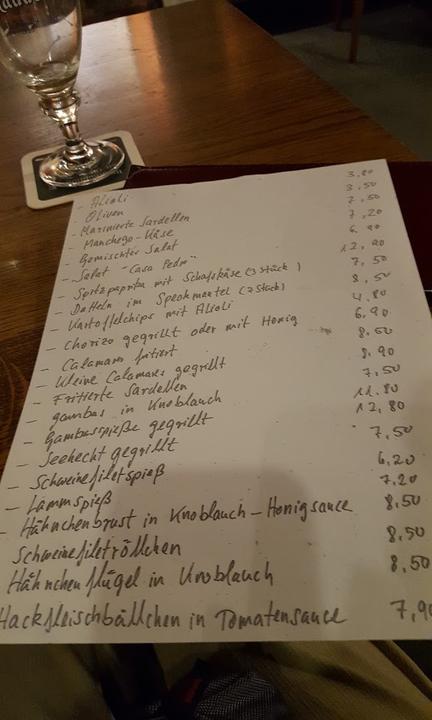 - Alioli 3,80
- Oliven 3,50
- Marinierte Sardellen 7,50
- Manchego-Käse 7,20
- Gemischter Salat 6,90
- Salat "Casa Pedro" 12,90
- Spitzpaprika mit Schafskäse (3 Stück) 7,50
- Datteln im Speckmantel (7 Stück) 8,50
- Kartoffelchips mit Alioli 4,80
- Chorizo gegrillt oder mit Honig 6,90
- Calamares fritiert 8,50
- Kleine Calamares gegrillt 8,90
- Fritierte Sardellen 7,50
- Gambas in Knoblauch 11,80
- Gambasspieße gegrillt 12,80
- Seehecht gegrillt 7,50
- Schweinefiletspieß 6,20
- Lammspieß 7,20
- Hähnchenbrust in Knoblauch-Honigsauce 8,50
Schweinefiletröllchen 8,50
Hähnchenflügel in Knoblauch 8,50
Hackfleischbällchen in Tomatensauce 7,90